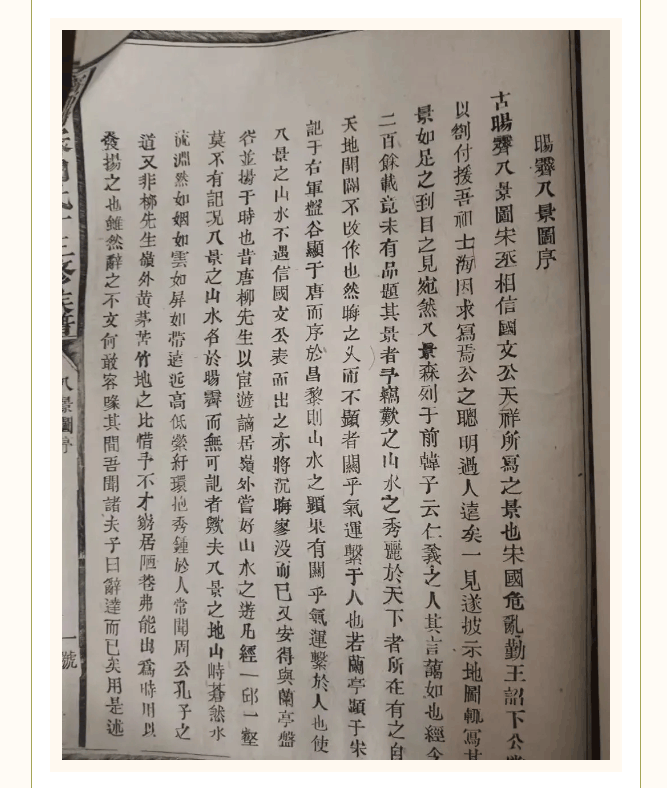 暘霽八景圖序
古暘霽八景圖宋丞相信國文公天祥所寫之景也宋國危亂勤王詔下公
以劄付援吾祖士海因求寫焉公之聰明過人遠矣一見遂披示地圖輒寫其
景如足之到目之見宛然八景森列于前韓子云仁義之人其言藹如也經今
二百餘載竟未有品題其景者予竊歎之山水之秀麗於天下者所在有之自
天地開闢不改作也然晦之久而不顯者關乎氣運繫于人也若蘭亭顯于宋
記于右軍盤谷顯于唐而序於昌黎則山水之顯果有關乎氣運繫於人也使
八景之山水不遇信國文公表而出之亦將沉晦寥没而已又安得與蘭亭盤
谷並揚于時也昔唐柳先生以宦遊謫居嶺外嘗好山水之遊凡經一邱一壑
莫不有記况八景之山水名於暘霽而無可記者歟夫八景之地山峙蒼然水
流淵然如烟如雲如屏如帶遠近高低縈紆環抱秀鍾於人常聞周公孔子之
道又非柳先生嶺外黄茅苦竹地之比惜予不才嶺居陋巷弗能出爲時用以
發揚之也雖然辭之不文何敢容喙其間吾聞諸夫子曰辭達而已矣用是述
八景圖序
一號